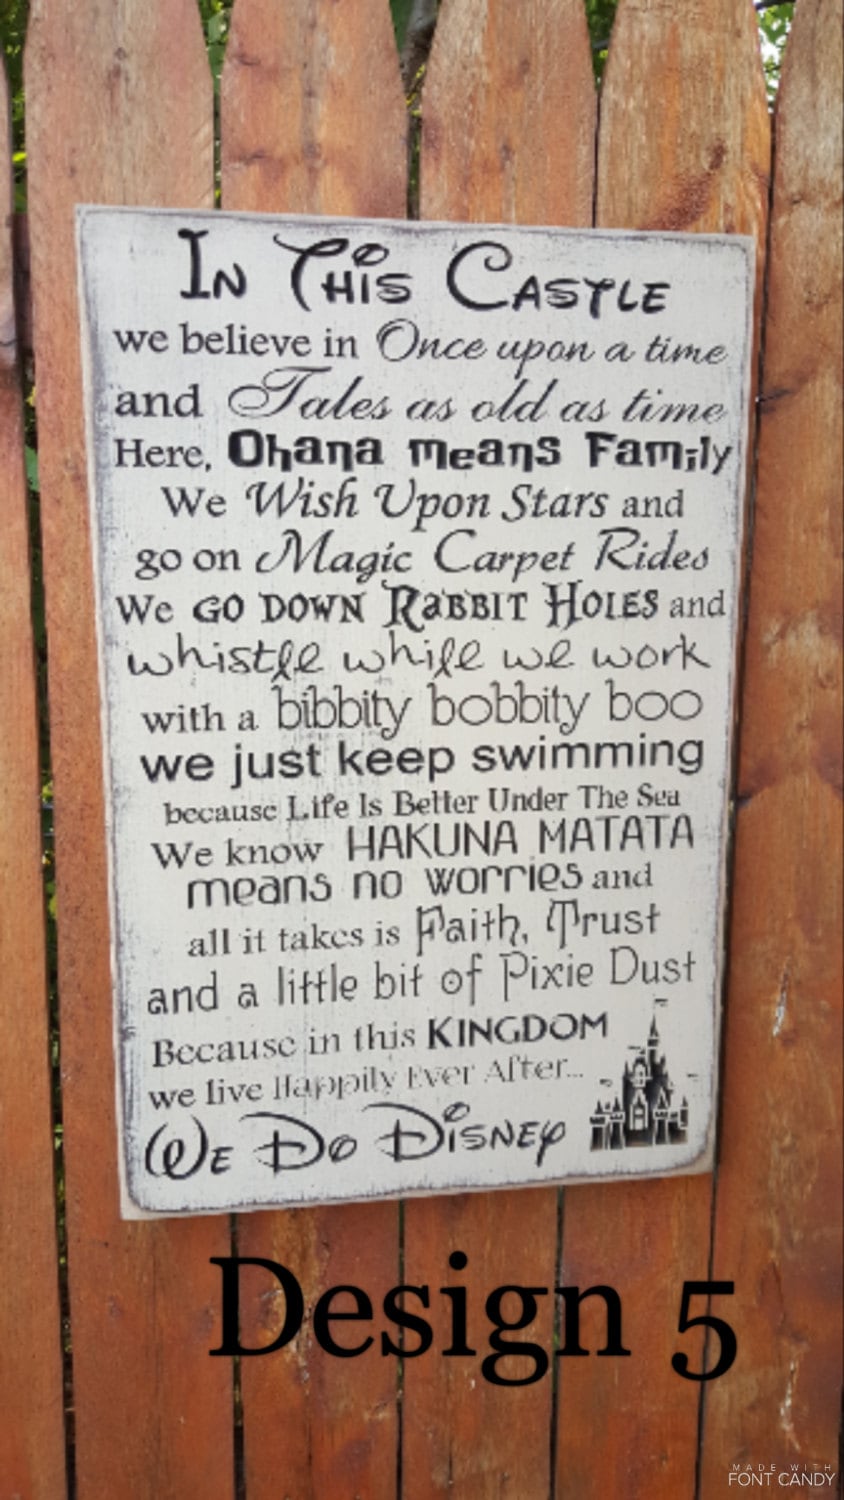 In This Castle
we believe in Once upon a time
and Tales as old as time
Here, Ohana means Family
We Wish Upon Stars and
go on Magic Carpet Rides
We GO DOWN RaBBIT HOLES and
whistle while we work
with a bibbity bobbity boo
we just keep swimming
because Life Is Better Under The Sea
We know HAKUNA MATATA
means no worries and
all it takes is Faith, Trust
and a little bit of Pixie Dust
Because in this KINGDOM
we live Happily Ever After...
We Do Disney
Design 5
MADE WITH
FONT CANDY